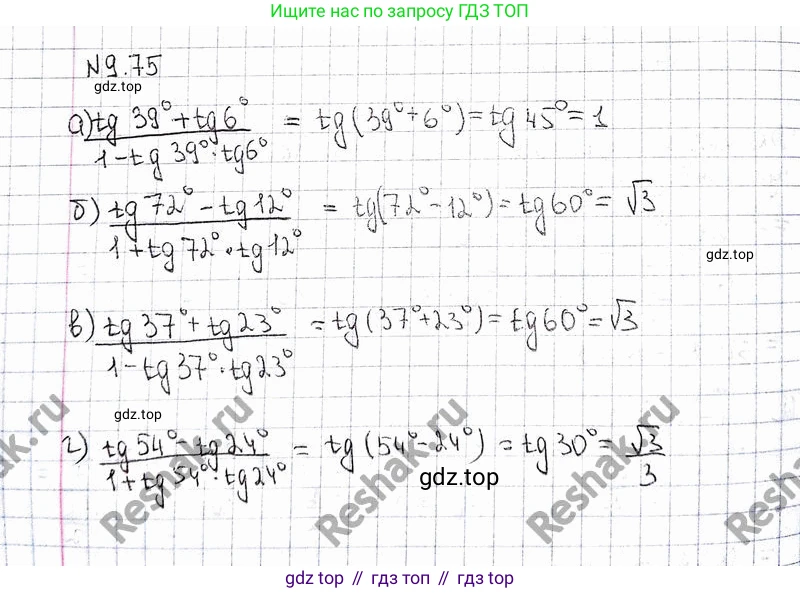 Ищите нас по запросу ГДЗ ТОП
№9.75
gdz.top
а) tg 39° + tg 6° / 1 - tg 39° · tg 6° = tg (39° + 6°) = tg 45° = 1
б) tg 72° - tg 12° / 1 + tg 72° · tg 12° = tg (72° - 12°) = tg 60° = √3
gdz.top
в) tg 37° + tg 23° / 1 - tg 37° · tg 23° = tg (37° + 23°) = tg 60° = √3
gdz.top
г) tg 54° - tg 24° / 1 + tg 54° · tg 24° = tg (54° - 24°) = tg 30° = √3 / 3
gdz.top
Reshak.ru
Reshak.ru
Reshak.ru
Reshak.ru
Reshak.ru
gdz top // гдз топ // gdz top